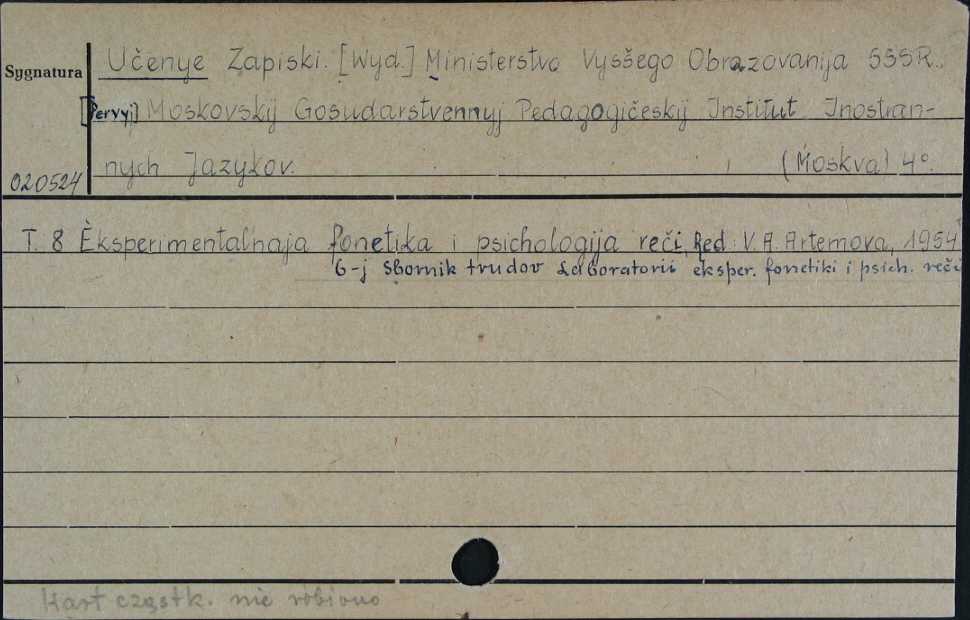 Učenye Zapiski. [Wyd.] Ministerstvo Vysšego Obrazovanija SSSR.
Sygnatura
[Pervyj] Moskovskij Gosudarstvennyj Pedagogičeskij Institut Inostran-
nych Jazykov. (Moskva) 4°.
020524
T. 8 Èksperimental'naja fonetika i psichologija reči, Red. V. A. Artemova, 1954
6-j Sbornik trudov Laboratorii eksper. fonetiki i psich. reči
Kart cząstk. nie robiono